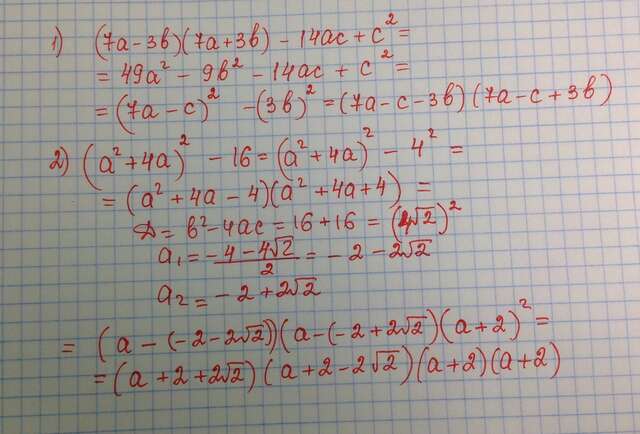 1) (7a-3b)(7a+3b) - 14ac + c² =
= 49a² - 9b² - 14ac + c² =
= (7a - c)² - (3b)² = (7a - c - 3b)(7a - c + 3b)
2) (a² + 4a)² - 16 = (a² + 4a)² - 4² =
= (a² + 4a - 4)(a² + 4a + 4) =
D = b² - 4ac = 16 + 16 = (4√2)²
a₁ = (-4 - 4√2)/2 = -2 - 2√2
a₂ = -2 + 2√2
= (a - (-2 - 2√2))(a - (-2 + 2√2)(a + 2)² =
= (a + 2 + 2√2)(a + 2 - 2√2)(a + 2)(a + 2)